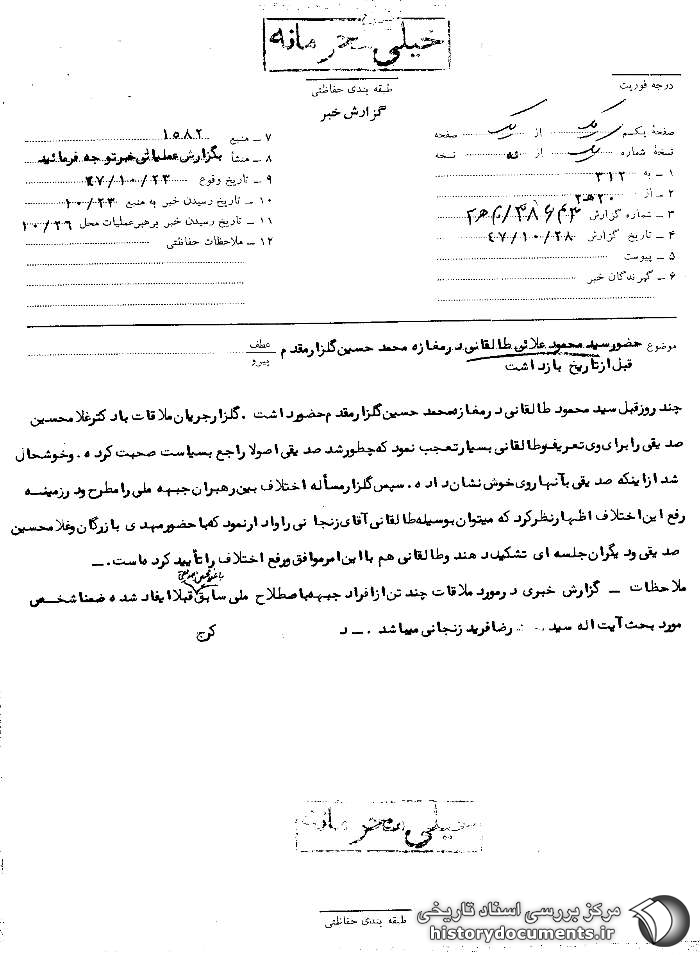 خیلی محرمانه
طبقه بندی حفاظتی
گزارش خبر
درجه فوریت
صفحهٔ یکم یک از یک صفحه
نسخهٔ شماره یک از نسخه
۱ ـ به ۳۱۲
۲ ـ از ۲۰ هـ ۳
۳ ـ شماره گزارش
۴ ـ تاریخ گزارش ۴۷/۱۰/۲۸
۵ ـ پیوست
۶ ـ گیرندگان خبر
۷ ـ منبع ۱۵۸۲
۸ ـ منشأ بگزارش عملیاتی خبر توجه فرمائید
۹ ـ تاریخ وقوع ۴۷/۱۰/۲۳
۱۰ ـ تاریخ رسیدن خبر به منبع ۱۰/۲۳
۱۱ ـ تاریخ رسیدن خبر برهبر عملیات محل ۱۰/۲۶
۱۲ ـ ملاحظات حفاظتی
موضوع حضور سید محمود علائی طالقانی در مغازه محمد حسین گلزار مقدم
عطف
پیرو
قبل از تاریخ بازداشت
چند روز قبل سید محمود طالقانی در مغازه محمد حسین گلزار مقدم حضور داشت . گلزار جریان ملاقات با دکتر غلامحسین
صدیقی را برای وی تعریف و طالقانی بسیار تعجب نمود که چطور شد صدیقی اصولا راجع بسیاست صحبت کرده . و خوشحال
شد از اینکه صدیقی با آنها روی خوش نشان داده . سپس گلزار مسأله اختلاف بین رهبران جبهه ملی را مطرح و در زمینه
رفع این اختلاف اظهار نظر کرد که میتوان بوسیله طالقانی آقای زنجانی را وادار نمود که با حضور مهدی بازرگان و غلامحسین
صدیقی و دیگران جلسه ای تشکیل دهند و طالقانی هم با این امر موافق و رفع اختلاف را تأیید کرده است . ـ
ملاحظات ـ گزارش خبری در مورد ملاقات چند تن از افراد جبهه باصطلاح ملی سابق قبلا ایفاد شده ضمنا شخص
مورد بحث آیت اله سید رضا فرید زنجانی میباشد . ـ د کرج
خیلی محرمانه
طبقه بندی حفاظتی
مرکز بررسی اسناد تاریخی
historydocuments.ir